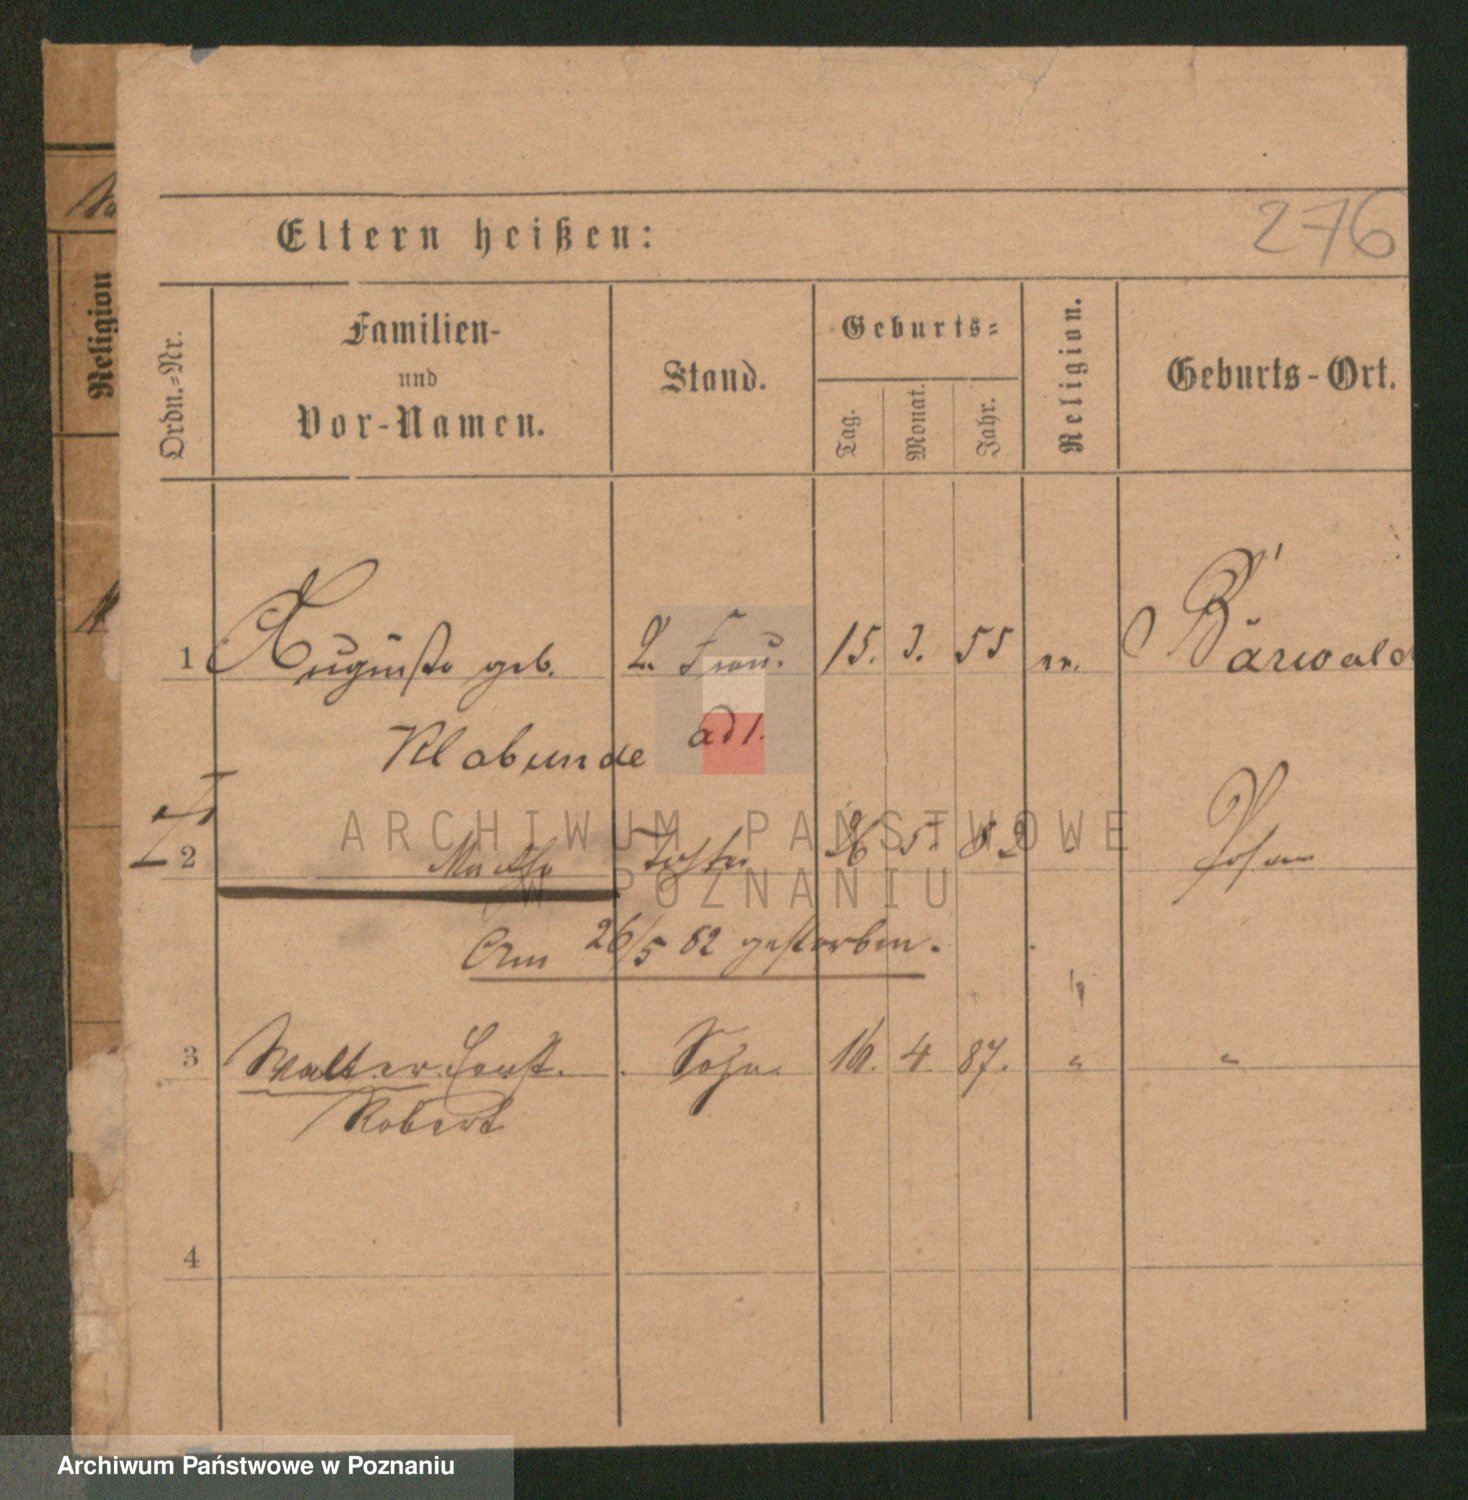 276
Eltern heißen:
Religion
Ordn.=Nr.
Familien-
und
Vor-Namen.
Stand.
Geburts=
Tag.
Monat.
Jahr.
Religion.
Geburts-Ort.
1 Auguste geb. 2. Frau. 15. 3. 55 ev. Bärwald
Klabunde ad 1.
2 Martha Tochter 26 5. 82 " Posen
Am 26/5 82 gestorben.
3 Walter Ernst. Sohn. 16. 4. 87. " "
Robert
4
ARCHIWUM PAŃSTWOWE
W POZNANIU
Archiwum Państwowe w Poznaniu